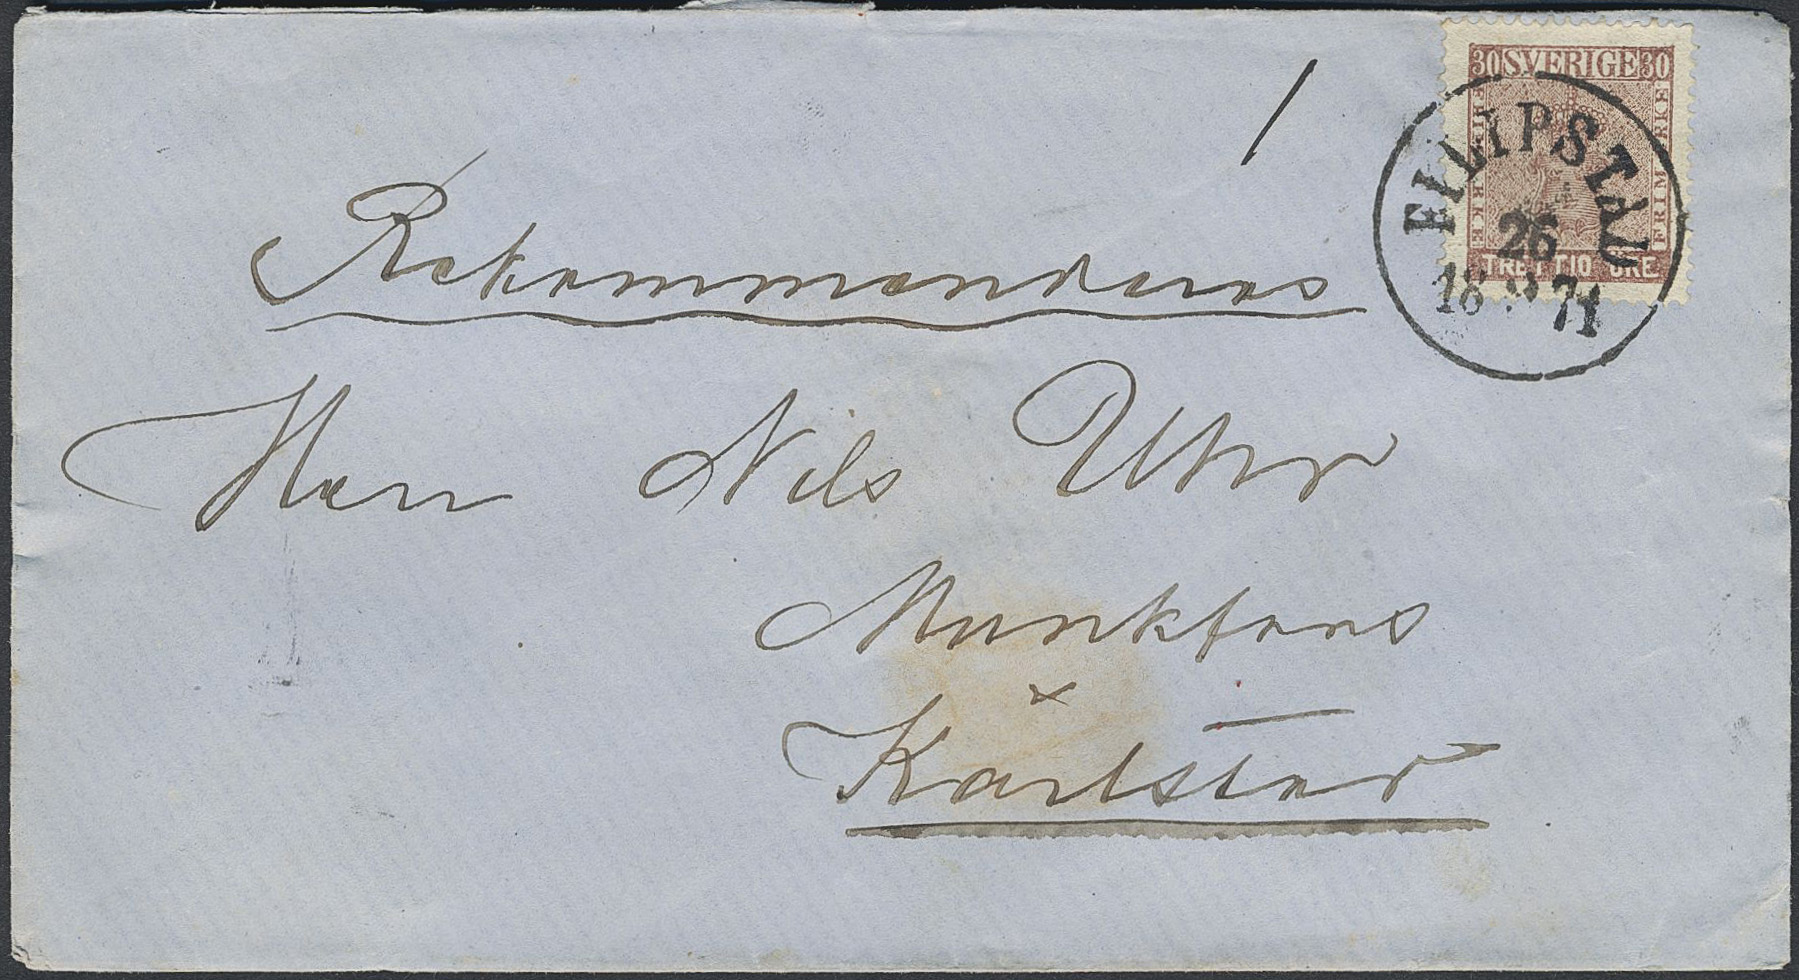 30 SVERIGE 30
FRIMÄRKE
FRIMÄRKE
TRETTIO ÖRE
FILIPSTAD
26
18 71
Rekommenderas
Herr Nils Uhr
Munkfors
Karlstad